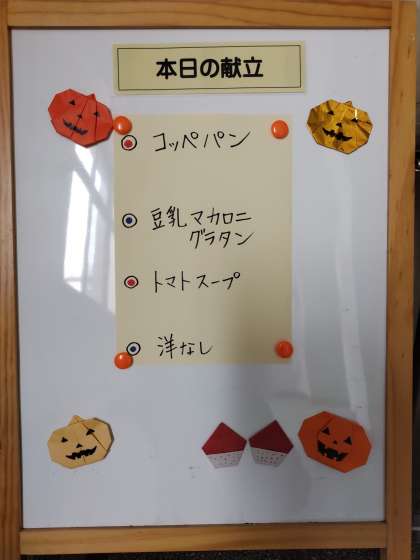 本日の献立
コッペパン
豆乳マカロニ
グラタン
トマトスープ
洋なし